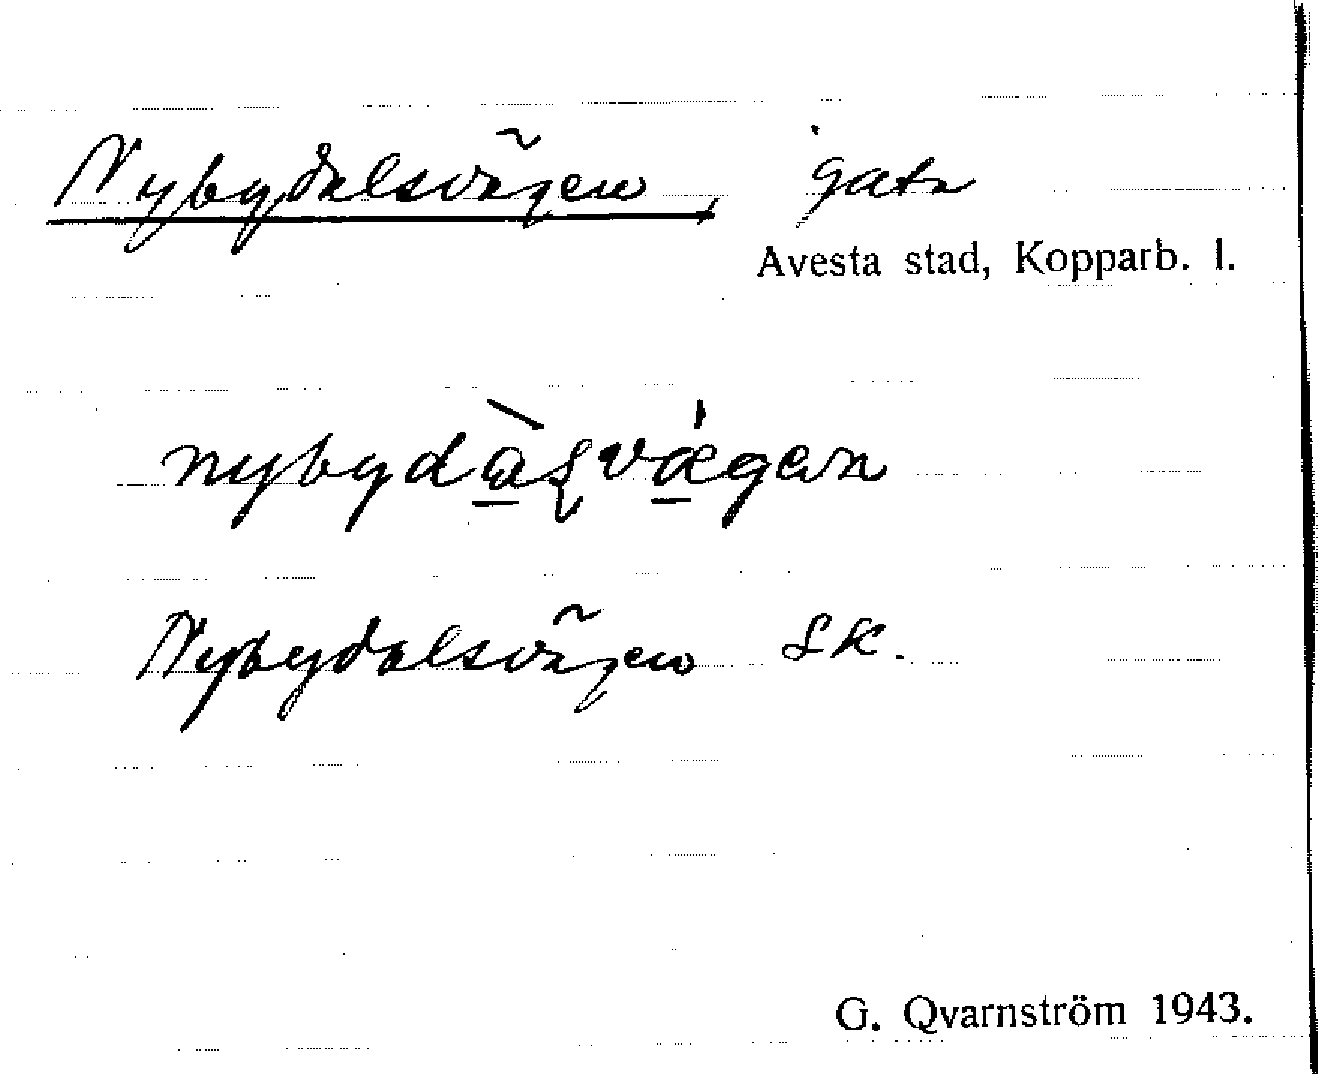 Nybydalsvägen, gata
Avesta stad, Kopparb. l.
nybydàʂvǽgən
Nybydalsvägen SK.
G. Qvarnström 1943.